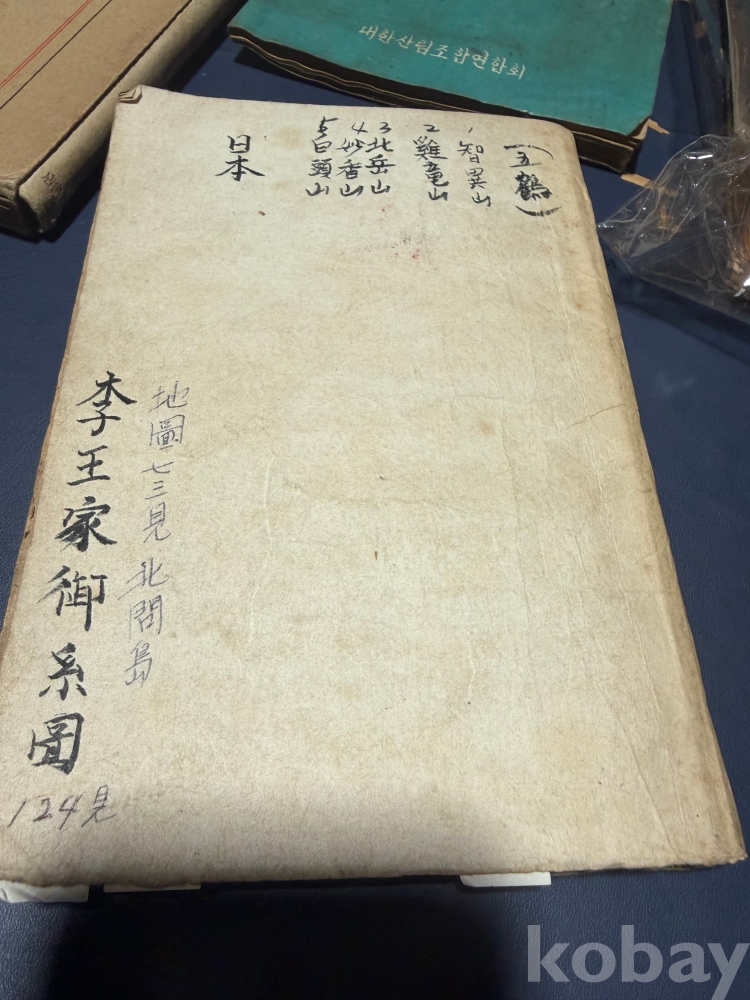 대한산림조합연합회
(五鶴)
1 智異山
2 雞竜山
3 北岳山
4 妙香山
5 白頭山
日本
地圖七三見 北間島
李王家御系圖
124見
kobay